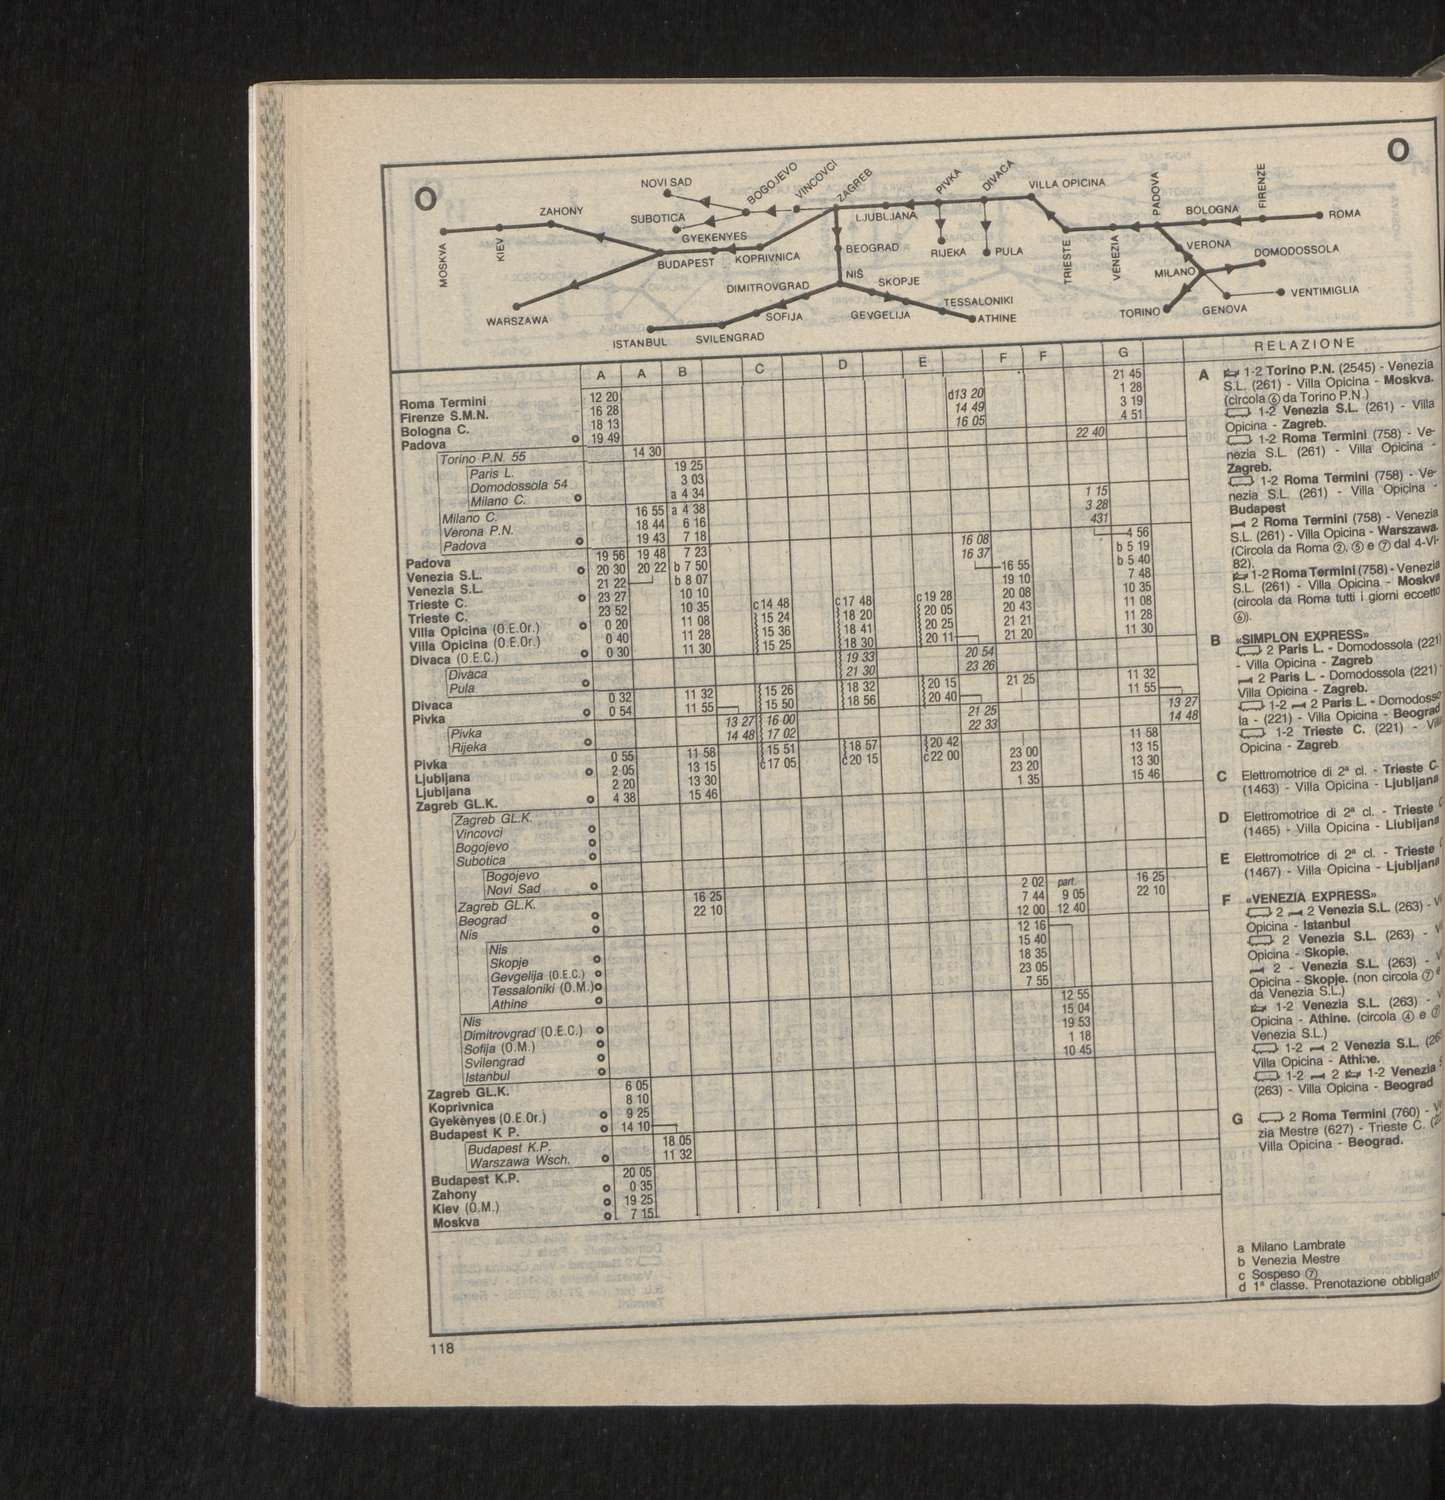 O
O
NOVI SAD
BOGOJEVO
VINCOVCI
ZAGREB
PIVKA
DIVACA
VILLA OPICINA
PADOVA
FIRENZE
ZAHONY
SUBOTICA
LJUBLJANA
BOLOGNA
ROMA
MOSKVA
KIEV
GYEKENYES
BUDAPEST
KOPRIVNICA
BEOGRAD
RIJEKA
PULA
TRIESTE
VENEZIA
VERONA
DOMODOSSOLA
MILANO
NIŠ
DIMITROVGRAD
SKOPJE
WARSZAWA
SOFIJA
GEVGELIJA
TESSALONIKI
ATHINE
TORINO
GENOVA
VENTIMIGLIA
ISTANBUL
SVILENGRAD
A A B C D E F F G
Roma Termini 12 20 21 45
Firenze S.M.N. 16 28 d13 20 1 28
Bologna C. 18 13 14 49 3 19
Padova 19 49 16 05 4 51
Torino P.N. 55 14 30 22 40
Paris L. 19 25
Domodossola 54 3 03
Milano C. a 4 34
Milano C. 16 55 a 4 38 1 15
Verona P.N. 18 44 6 16 3 28
Padova 19 43 7 18 431
Padova 19 56 19 48 7 23 16 08 4 56
Venezia S.L. 20 30 20 22 b 7 50 16 37 b 5 19
Venezia S.L. 21 22 b 8 07 16 55 b 5 40
Trieste C. 23 27 10 10 19 10 7 48
Trieste C. 23 52 10 35 c14 48 c17 48 c19 28 20 08 10 35
Villa Opicina (O.E.Or.) 0 20 11 08 15 24 18 20 20 05 20 43 11 08
Villa Opicina (O.E.Or.) 0 40 11 28 15 36 18 41 20 25 21 21 11 28
Divaca (O.E.C.) 0 30 11 30 15 25 18 30 20 11 21 20 11 30
Divaca 19 33 20 54
Pula 21 30 23 26
Divaca 0 32 11 32 15 26 18 32 20 15 21 25 11 32
Pivka 0 54 11 55 15 50 18 56 20 40 11 55
Pivka 13 27 16 00 21 25 13 27
Rijeka 14 48 17 02 22 33 14 48
Pivka 0 55 11 58 15 51 18 57 20 42 11 58
Ljubljana 2 05 13 15 c17 05 c20 15 c22 00 23 00 13 15
Ljubljana 2 20 13 30 23 20 13 30
Zagreb GL.K. 4 38 15 46 1 35 15 46
Zagreb GL.K.
Vincovci
Bogojevo
Subotica
Bogojevo
Novi Sad
Zagreb GL.K. 16 25 2 02 part. 16 25
Beograd 22 10 7 44 9 05 22 10
Nis 12 00 12 40
Nis 12 16
Skopje 15 40
Gevgelija (O.E.C.) 18 35
Tessaloniki (O.M.) 23 05
Athine 7 55
Nis 12 55
Dimitrovgrad (O.E.C.) 15 04
Sofija (O.M.) 19 53
Svilengrad 1 18
Istanbul 10 45
Zagreb GL.K. 6 05
Koprivnica 8 10
Gyekènyes (O.E.Or.) 9 25
Budapest K P. 14 10
Budapest K.P. 18 05
Warszawa Wsch. 11 32
Budapest K.P. 20 05
Zahony 0 35
Kiev (O.M.) 19 25
Moskva 7 15
RELAZIONE
A 1-2 Torino P.N. (2545) - Venezia
S.L. (261) - Villa Opicina - Moskva.
(circola ⑥ da Torino P.N.)
1-2 Venezia S.L. (261) - Villa
Opicina - Zagreb.
1-2 Roma Termini (758) - Ve-
nezia S.L. (261) - Villa Opicina -
Zagreb.
1-2 Roma Termini (758) - Ve-
nezia S.L. (261) - Villa Opicina -
Budapest
2 Roma Termini (758) - Venezia
S.L. (261) - Villa Opicina - Warszawa.
(Circola da Roma ②, ⑤ e ⑦ dal 4-VI-
82).
1-2 Roma Termini (758) - Venezia
S.L. (261) - Villa Opicina - Moskva
(circola da Roma tutti i giorni eccetto
⑥).
B «SIMPLON EXPRESS»
2 Paris L. - Domodossola (221)
- Villa Opicina - Zagreb
2 Paris L. - Domodossola (221) -
Villa Opicina - Zagreb.
1-2 2 Paris L. - Domodosso-
la - (221) - Villa Opicina - Beograd
1-2 Trieste C. (221) - Villa
Opicina - Zagreb
C Elettromotrice di 2ª cl. - Trieste C.
(1463) - Villa Opicina - Ljubljana
D Elettromotrice di 2ª cl. - Trieste
(1465) - Villa Opicina - Liubljana
E Elettromotrice di 2ª cl. - Trieste
(1467) - Villa Opicina - Ljubljana
F «VENEZIA EXPRESS»
2 2 Venezia S.L. (263) -
Opicina - Istanbul
2 Venezia S.L. (263) -
Opicina - Skopie.
2 - Venezia S.L. (263) -
Opicina - Skopje. (non circola ⑦
da Venezia S.L.)
1-2 Venezia S.L. (263) -
Opicina - Athine. (circola ④ e ⑦
Venezia S.L.)
1-2 2 Venezia S.L.
Villa Opicina - Athine.
1-2 2 1-2 Venezia
(263) - Villa Opicina - Beograd
G 2 Roma Termini (760) -
zia Mestre (627) - Trieste C.
Villa Opicina - Beograd.
a Milano Lambrate
b Venezia Mestre
c Sospeso ⑦
d 1ª classe. Prenotazione obbligator
118